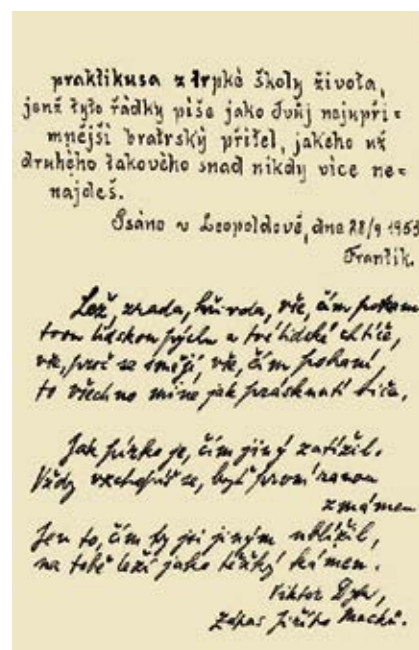 praktikusa z trpké školy života,
jenž tyto řádky píše jako Tvůj nejupří=
mnější bratrský přítel, jakého už
druhého takového snad nikdy více ne=
najdeš.
Psáno v Leopoldově, dne 28/9 1953
Frantík.
Lež, zrada, křivda, vše, čím pokam
tvou lidskou pýchu a tvé lidské chtíče,
vše, proč se smějí, vše, čím pohaní,
to všechno mine jak prásknutí biče.
Jak hízko je, čím jiný zatížil.
Vždy vzchopíš se, byť první ranou
zmámen
Jen to, čím ty jsi jiným ublížil,
na tobě leží jako těžký kámen.
Viktor Dyk,
Zápas Jiřího Macků.